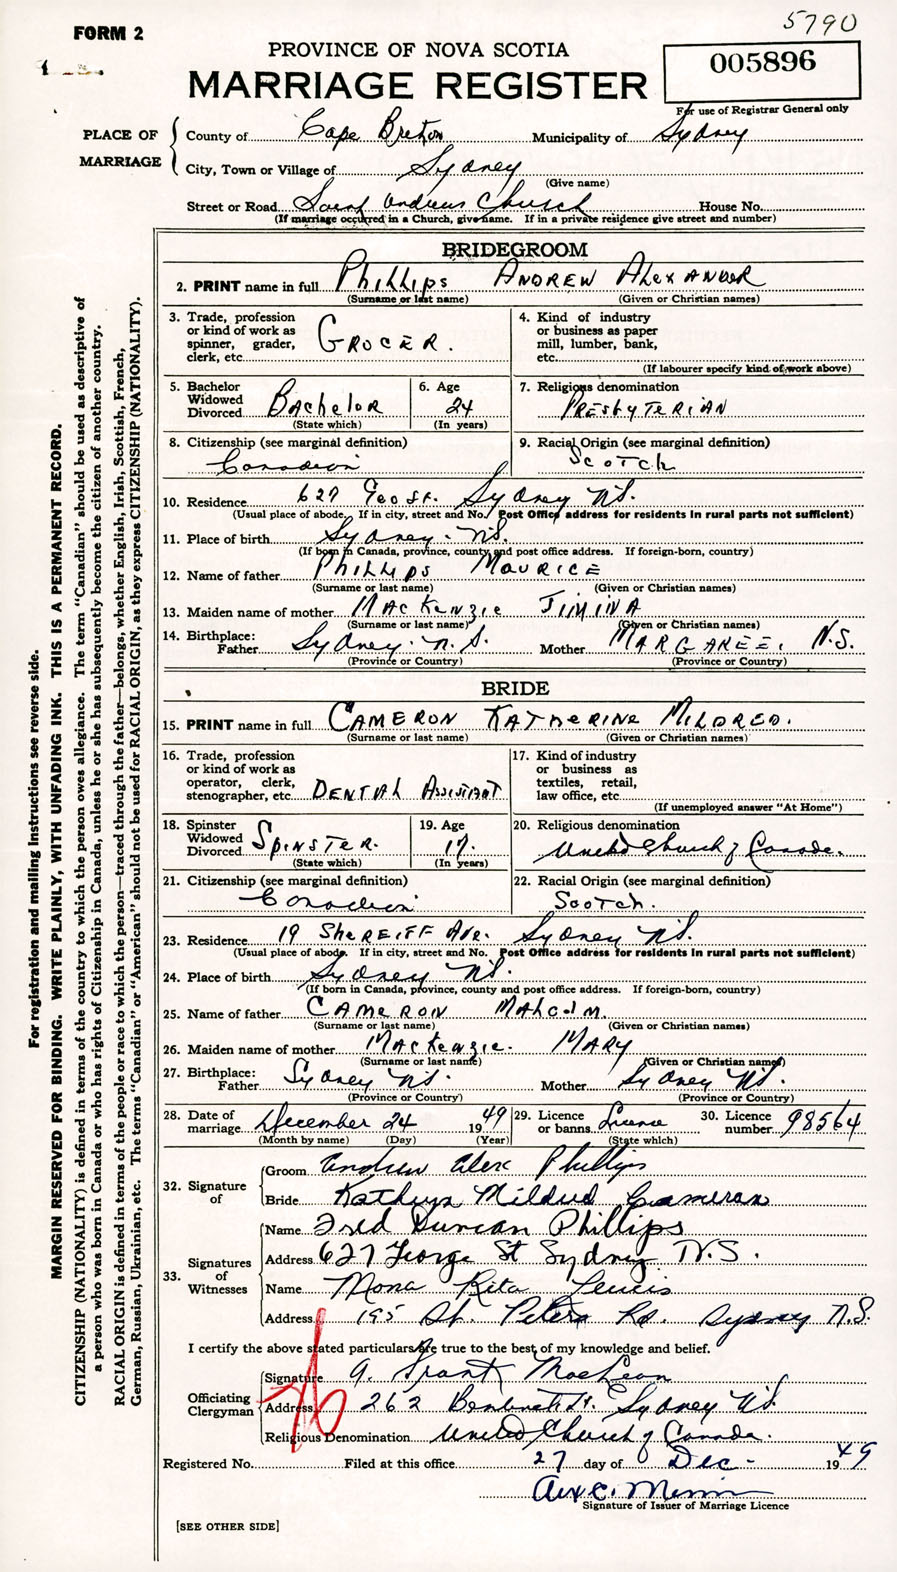 5790
FORM 2
PROVINCE OF NOVA SCOTIA
MARRIAGE REGISTER
005896
For use of Registrar General only
PLACE OF MARRIAGE
County of Cape Breton Municipality of Sydney
City, Town or Village of Sydney
(Give name)
Street or Road Saint Andrews Church House No.
(If marriage occurred in a Church, give name. If in a private residence give street and number)
BRIDEGROOM
2. PRINT name in full PHILLIPS ANDREW ALEXANDER
(Surname or last name) (Given or Christian names)
3. Trade, profession or kind of work as spinner, grader, clerk, etc. GROCER.
4. Kind of industry or business as paper mill, lumber, bank, etc.
(If labourer specify kind of work above)
5. Bachelor Widowed Divorced BACHELOR
(State which)
6. Age 24
(In years)
7. Religious denomination PRESBYTERIAN
8. Citizenship (see marginal definition) Canadian
9. Racial Origin (see marginal definition) SCOTCH
10. Residence 627 Geo St. Sydney N.S.
(Usual place of abode. If in city, street and No. Post Office address for residents in rural parts not sufficient)
11. Place of birth Sydney - N.S.
(If born in Canada, province, county and post office address. If foreign-born, country)
12. Name of father PHILLIPS MAURICE
(Surname or last name) (Given or Christian names)
13. Maiden name of mother MACKENZIE JIMINA
(Surname or last name) (Given or Christian names)
14. Birthplace: Father Sydney. N.S. Mother MARGAREE, N.S.
(Province or Country) (Province or Country)
BRIDE
15. PRINT name in full CAMERON KATHERINE MILDRED.
(Surname or last name) (Given or Christian names)
16. Trade, profession or kind of work as operator, clerk, stenographer, etc. DENTAL ASSISTANT
17. Kind of industry or business as textiles, retail, law office, etc.
(If unemployed answer "At Home")
18. Spinster Widowed Divorced SPINSTER.
(State which)
19. Age 19.
(In years)
20. Religious denomination United Church of Canada.
21. Citizenship (see marginal definition) Canadian
22. Racial Origin (see marginal definition) SCOTCH.
23. Residence 19 SHEREIFF AVE. Sydney N.S.
(Usual place of abode. If in city, street and No. Post Office address for residents in rural parts not sufficient)
24. Place of birth Sydney N.S.
(If born in Canada, province, county and post office address. If foreign-born, country)
25. Name of father CAMERON MALCOLM.
(Surname or last name) (Given or Christian names)
26. Maiden name of mother MACKENZIE. MARY
(Surname or last name) (Given or Christian names)
27. Birthplace: Father Sydney N.S. Mother Sydney N.S.
(Province or Country) (Province or Country)
28. Date of marriage December 24 1949
(Month by name) (Day) (Year)
29. Licence or banns Licence
(State which)
30. Licence number 98564
32. Signature of
Groom Andrew Alex Phillips
Bride Kathryn Mildred Cameron
33. Signatures of Witnesses
Name Fred Duncan Phillips
Address 627 George St Sydney, N.S.
Name Mona Rita Lewis
Address 195 St. Peters Rd. Sydney N.S.
I certify the above stated particulars are true to the best of my knowledge and belief.
Officiating Clergyman
Signature A. Grant MacLean
Address 262 St. Sydney N.S.
Religious Denomination United Church of Canada.
Registered No. Filed at this office 27 day of Dec - 1949
Signature of Issuer of Marriage Licence
[SEE OTHER SIDE]
For registration and mailing instructions see reverse side.
MARGIN RESERVED FOR BINDING. WRITE PLAINLY, WITH UNFADING INK. THIS IS A PERMANENT RECORD.
CITIZENSHIP (NATIONALITY) is defined in terms of the country to which the person owes allegiance. The term "Canadian" should be used as descriptive of
a person who was born in Canada or who has rights of Citizenship in Canada, unless he or she has subsequently become the citizen of another country.
RACIAL ORIGIN is defined in terms of the people or race to which the person—traced through the father—belongs, whether English, Irish, Scottish, French,
German, Russian, Ukrainian, etc. The terms "Canadian" or "American" should not be used for RACIAL ORIGIN, as they express CITIZENSHIP (NATIONALITY).